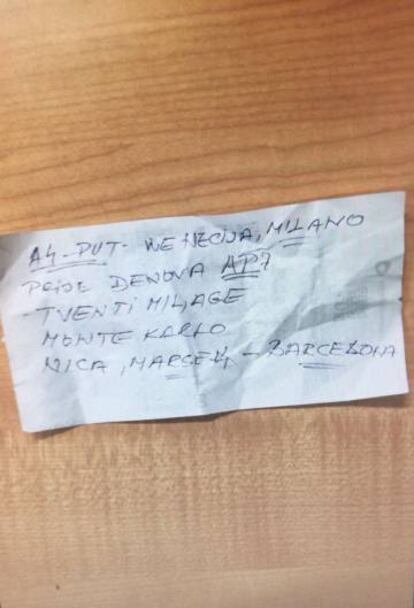 A4-PUT- VENECIJA, MILANO
PRIJE DENOVA AP7
TVENTI MILAGE
MONTE KARLO
NICA, MARCEL - BARCELONA